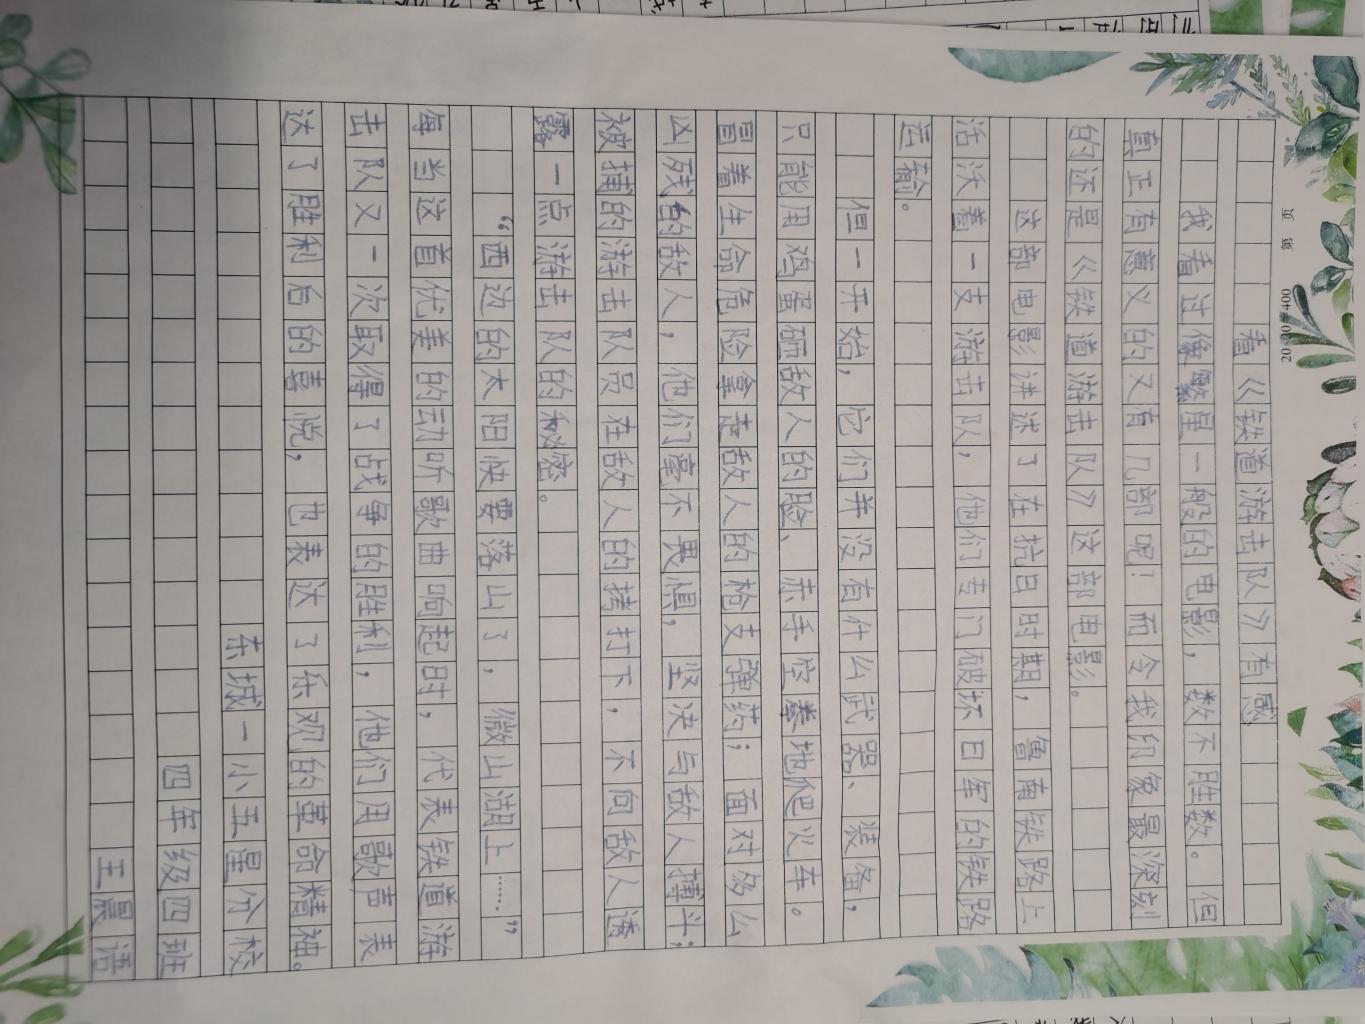 20×20=400 第 页
看《铁道游击队》有感
我看过像繁星一般的电影，数不胜数。但
真正有意义的又有几部呢！而令我印象最深刻
的还是《铁道游击队》这部电影。
这部电影讲述了在抗日时期，鲁南铁路上
活沃着一支游击队，他们专门破坏日军的铁路
运输。
但一开始，它们并没有什么武器、装备，
只能用鸡蛋砸敌人的脸、赤手空拳地爬火车。
冒着生命危险拿走敌人的枪支弹药；面对多么
凶残的敌人，他们毫不畏惧，坚决与敌人搏斗；
被捕的游击队员在敌人的拷打下，不向敌人透
露一点游击队的秘密。
“西边的太阳快要落山了，微山湖上……”
每当这首优美的动听歌曲响起时，代表铁道游
击队又一次取得了战争的胜利，他们用歌声表
达了胜利后的喜悦，也表达了乐观的革命精神。
东城一小五星分校
四年级四班
王晨语